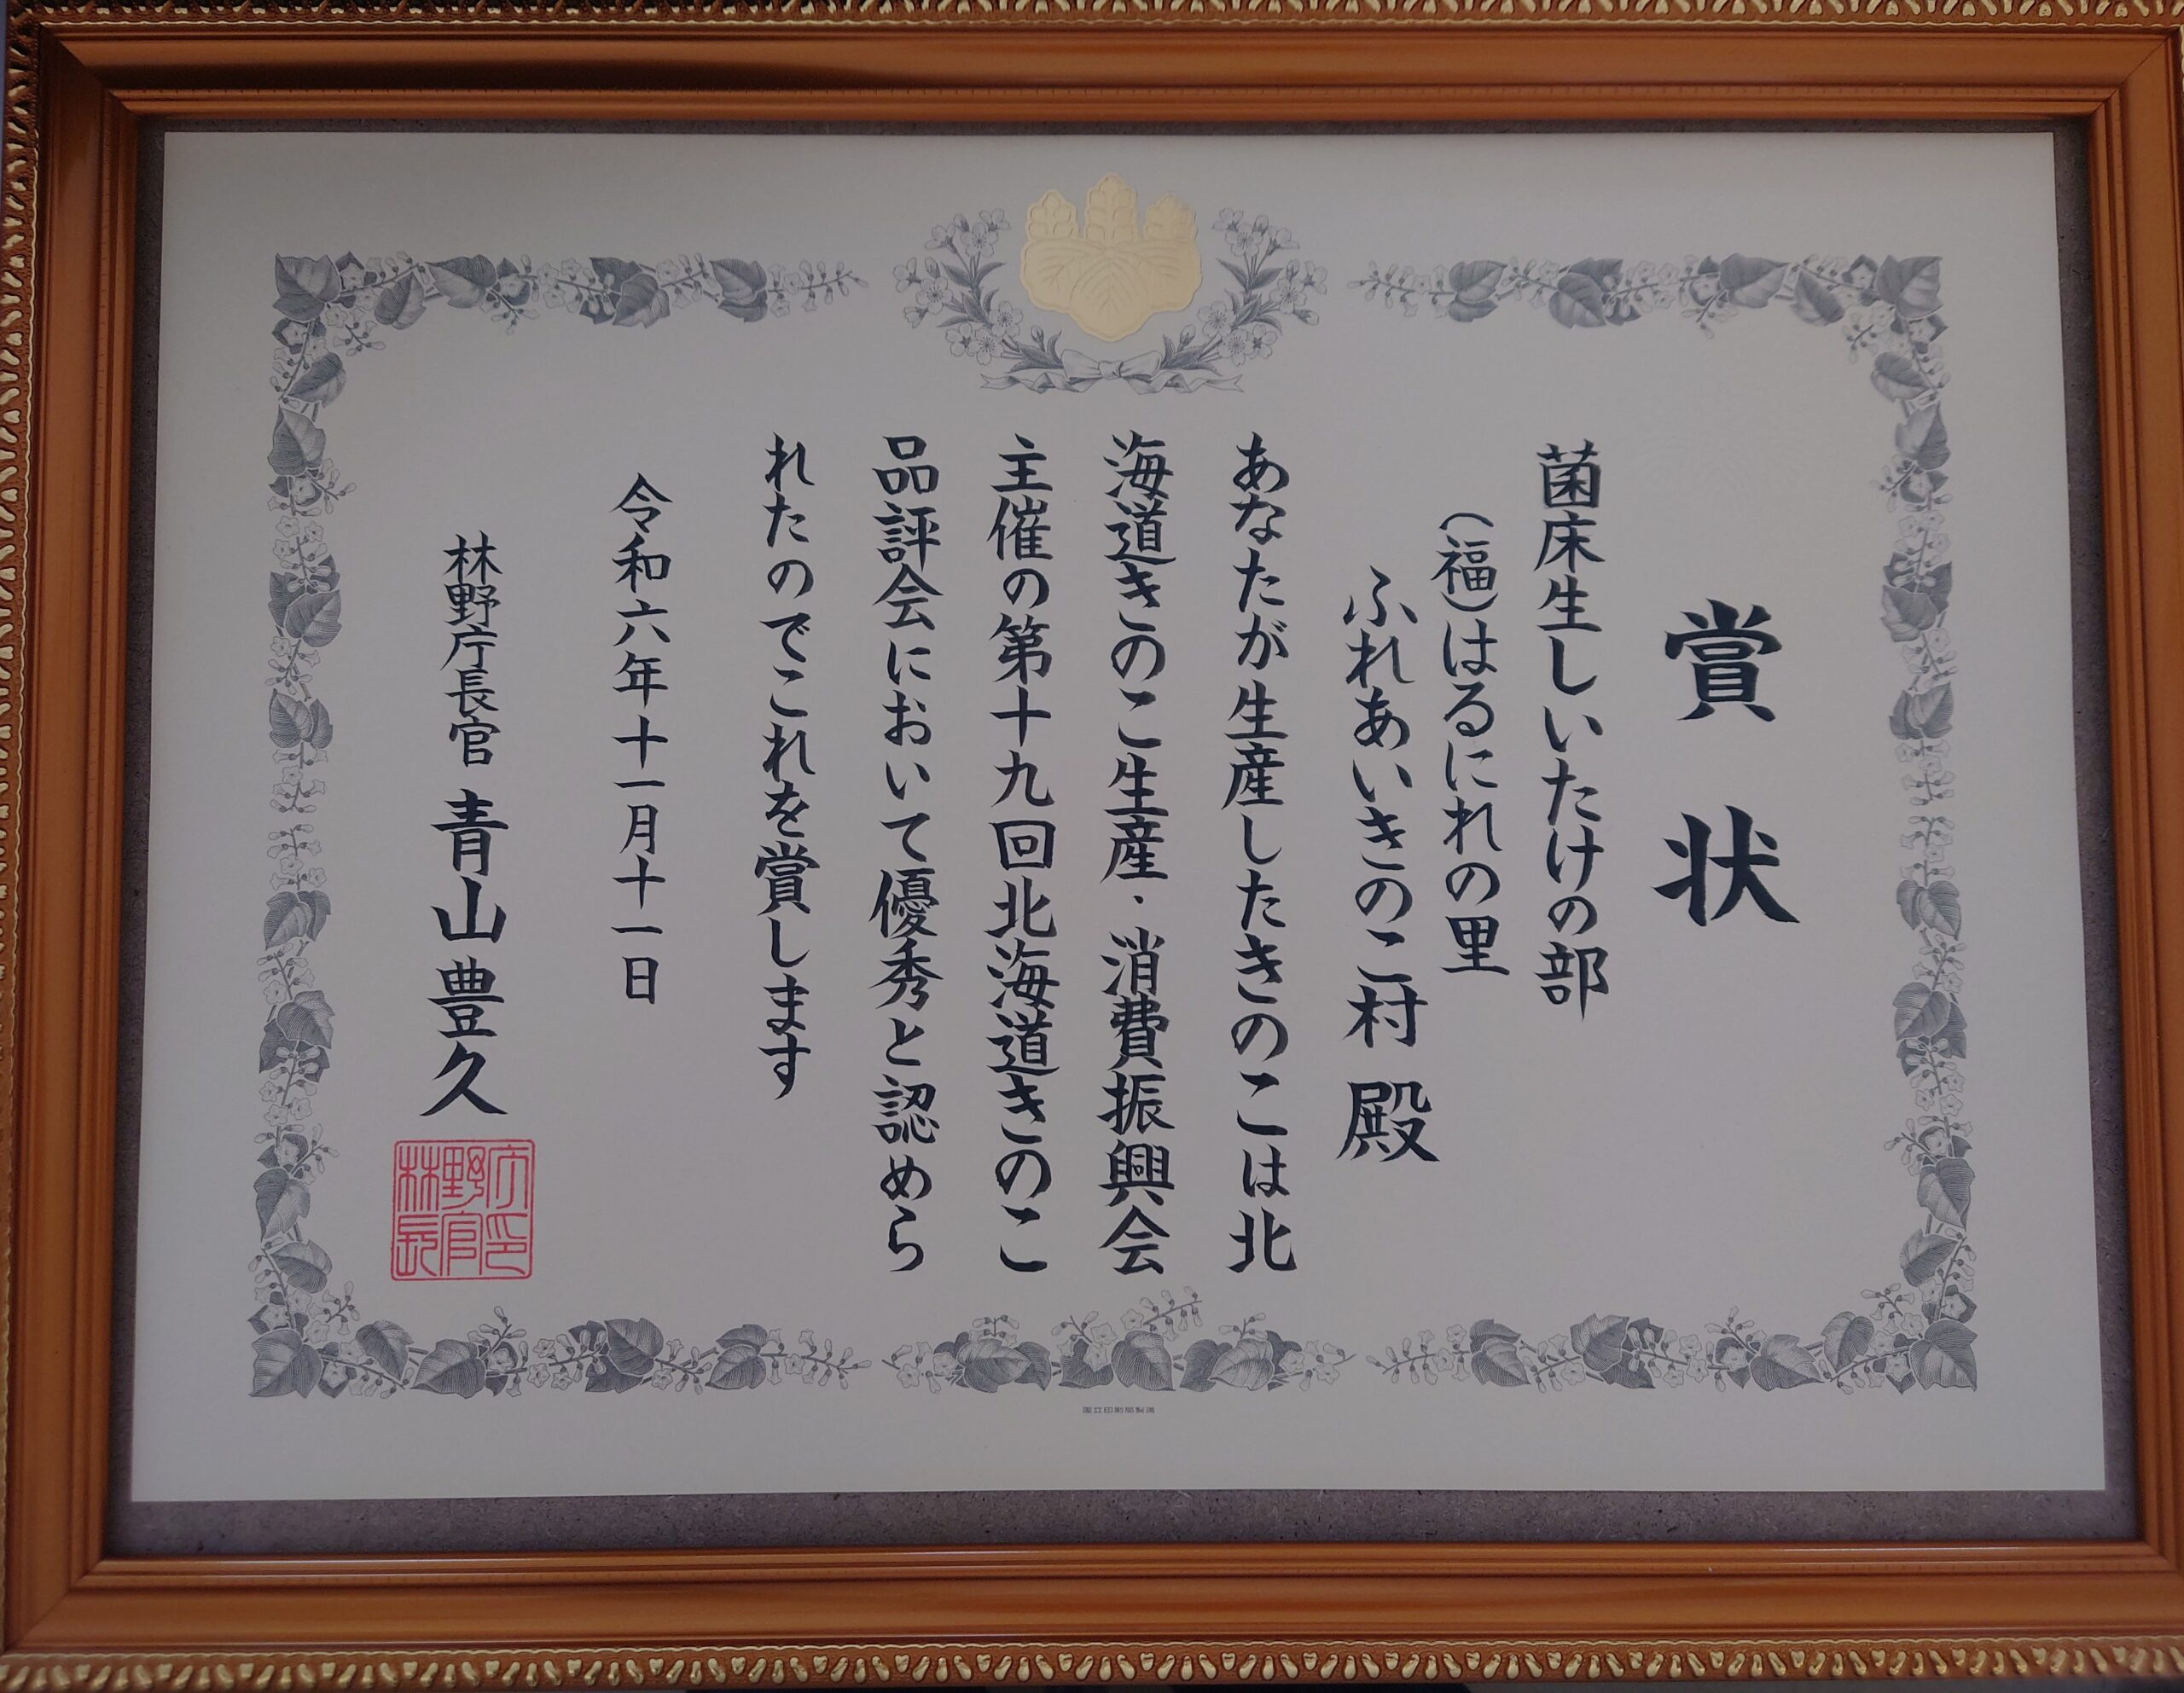 賞状
菌床生しいたけの部
(福)はるにれの里
ふれあいきのこ村 殿
あなたが生産したきのこは北
海道きのこ生産・消費振興会
主催の第十九回北海道きのこ
品評会において優秀と認めら
れたのでこれを賞します
令和六年十一月十一日
林野庁長官 青山豊久
林野庁長官印
国立印刷局製造